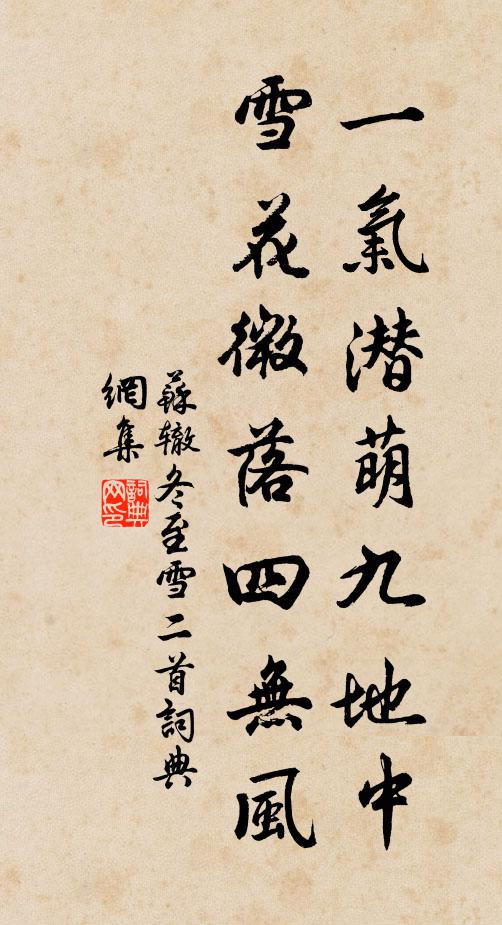 一氣潜萌九地中
雪花微落四無風
蘇辙冬至雪二首詞典
網集
詞典
网印